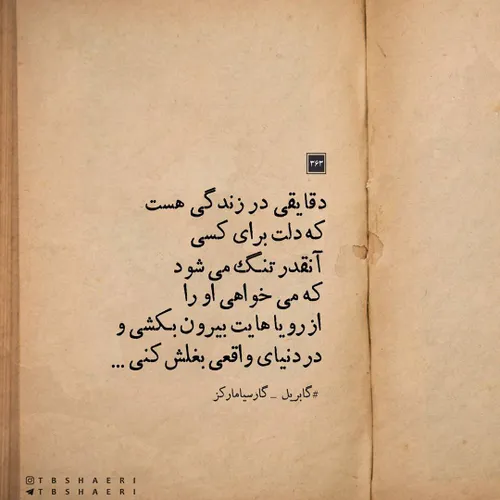 ۳۶۳
دقایقی در زندگی هست
که دلت برای کسی
آنقدر تنگ می شود
که می خواهی او را
از رویاهایت بیرون بکشی و
در دنیای واقعی بغلش کنی ...
#گابریل _ گارسیامارکز
TBSHAERI
TBSHAERI